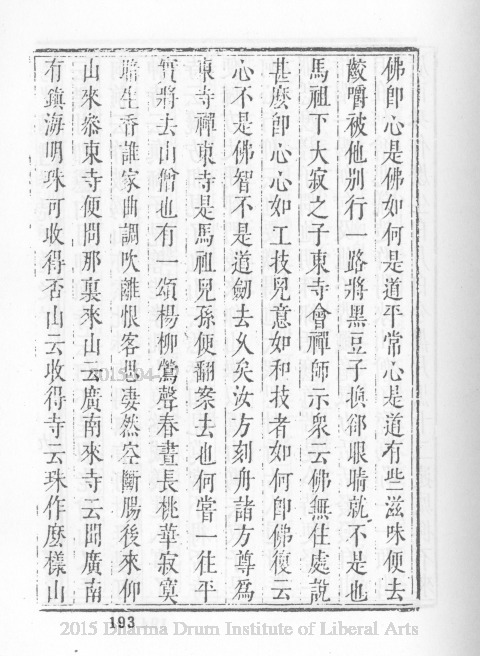 佛卽心是佛如何是道平常心是道有些滋味便去
齩嚼被他別行一路將黑豆子換卻眼睛就不是也
馬祖下大寂之子東寺會禪師示衆云佛無住處說
甚麼卽心心如工技兒意如和技者如何卽佛復云
心不是佛智不是道劒去久矣汝方刻舟諸方尊爲
東寺禪東寺是馬祖兒孫便翻案去也何嘗一往平
實將去山僧也有一頌楊柳鶯聲春晝長桃華寂寞
牆生香誰家曲調吹離恨客思凄然空斷腸後來仰
山來參東寺便問那裏來山云廣南來寺云聞廣南
有鎭海明珠可收得否山云收得寺云珠作麼樣山
193
2015-04-
2015 Dharma Drum Institute of Liberal Arts